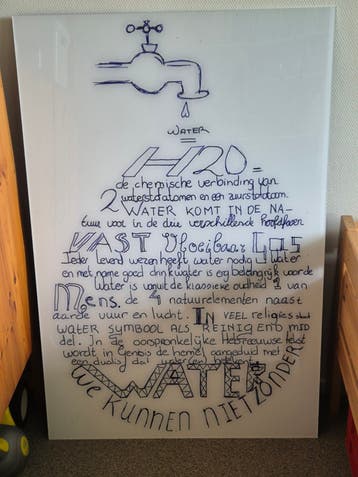 WATER
H2O =
de chemische verbinding van
2 waterstofatomen en een zuurstofatoom.
WATER KOMT IN DE NA-
tuur voor in de drie verschillende hoofdfasen
VAST Vloeibaar Gas
Ieder levend wezen heeft water nodig. Water
en met name goed drinkwater is erg belangrijk voor de
Mens. Water is vanuit de klassieke oudheid 1 van
de 4 natuurelementen naast
aarde vuur en lucht. IN VEEL religies staat
WATER SYMBOOL ALS REINIGEND MID
del. In de oorspronkelijke Hebreeuwse tekst
wordt in Genesis de hemel aangeduid met
een dualis dat water
WATER
WE KUNNEN NIET ZONDER